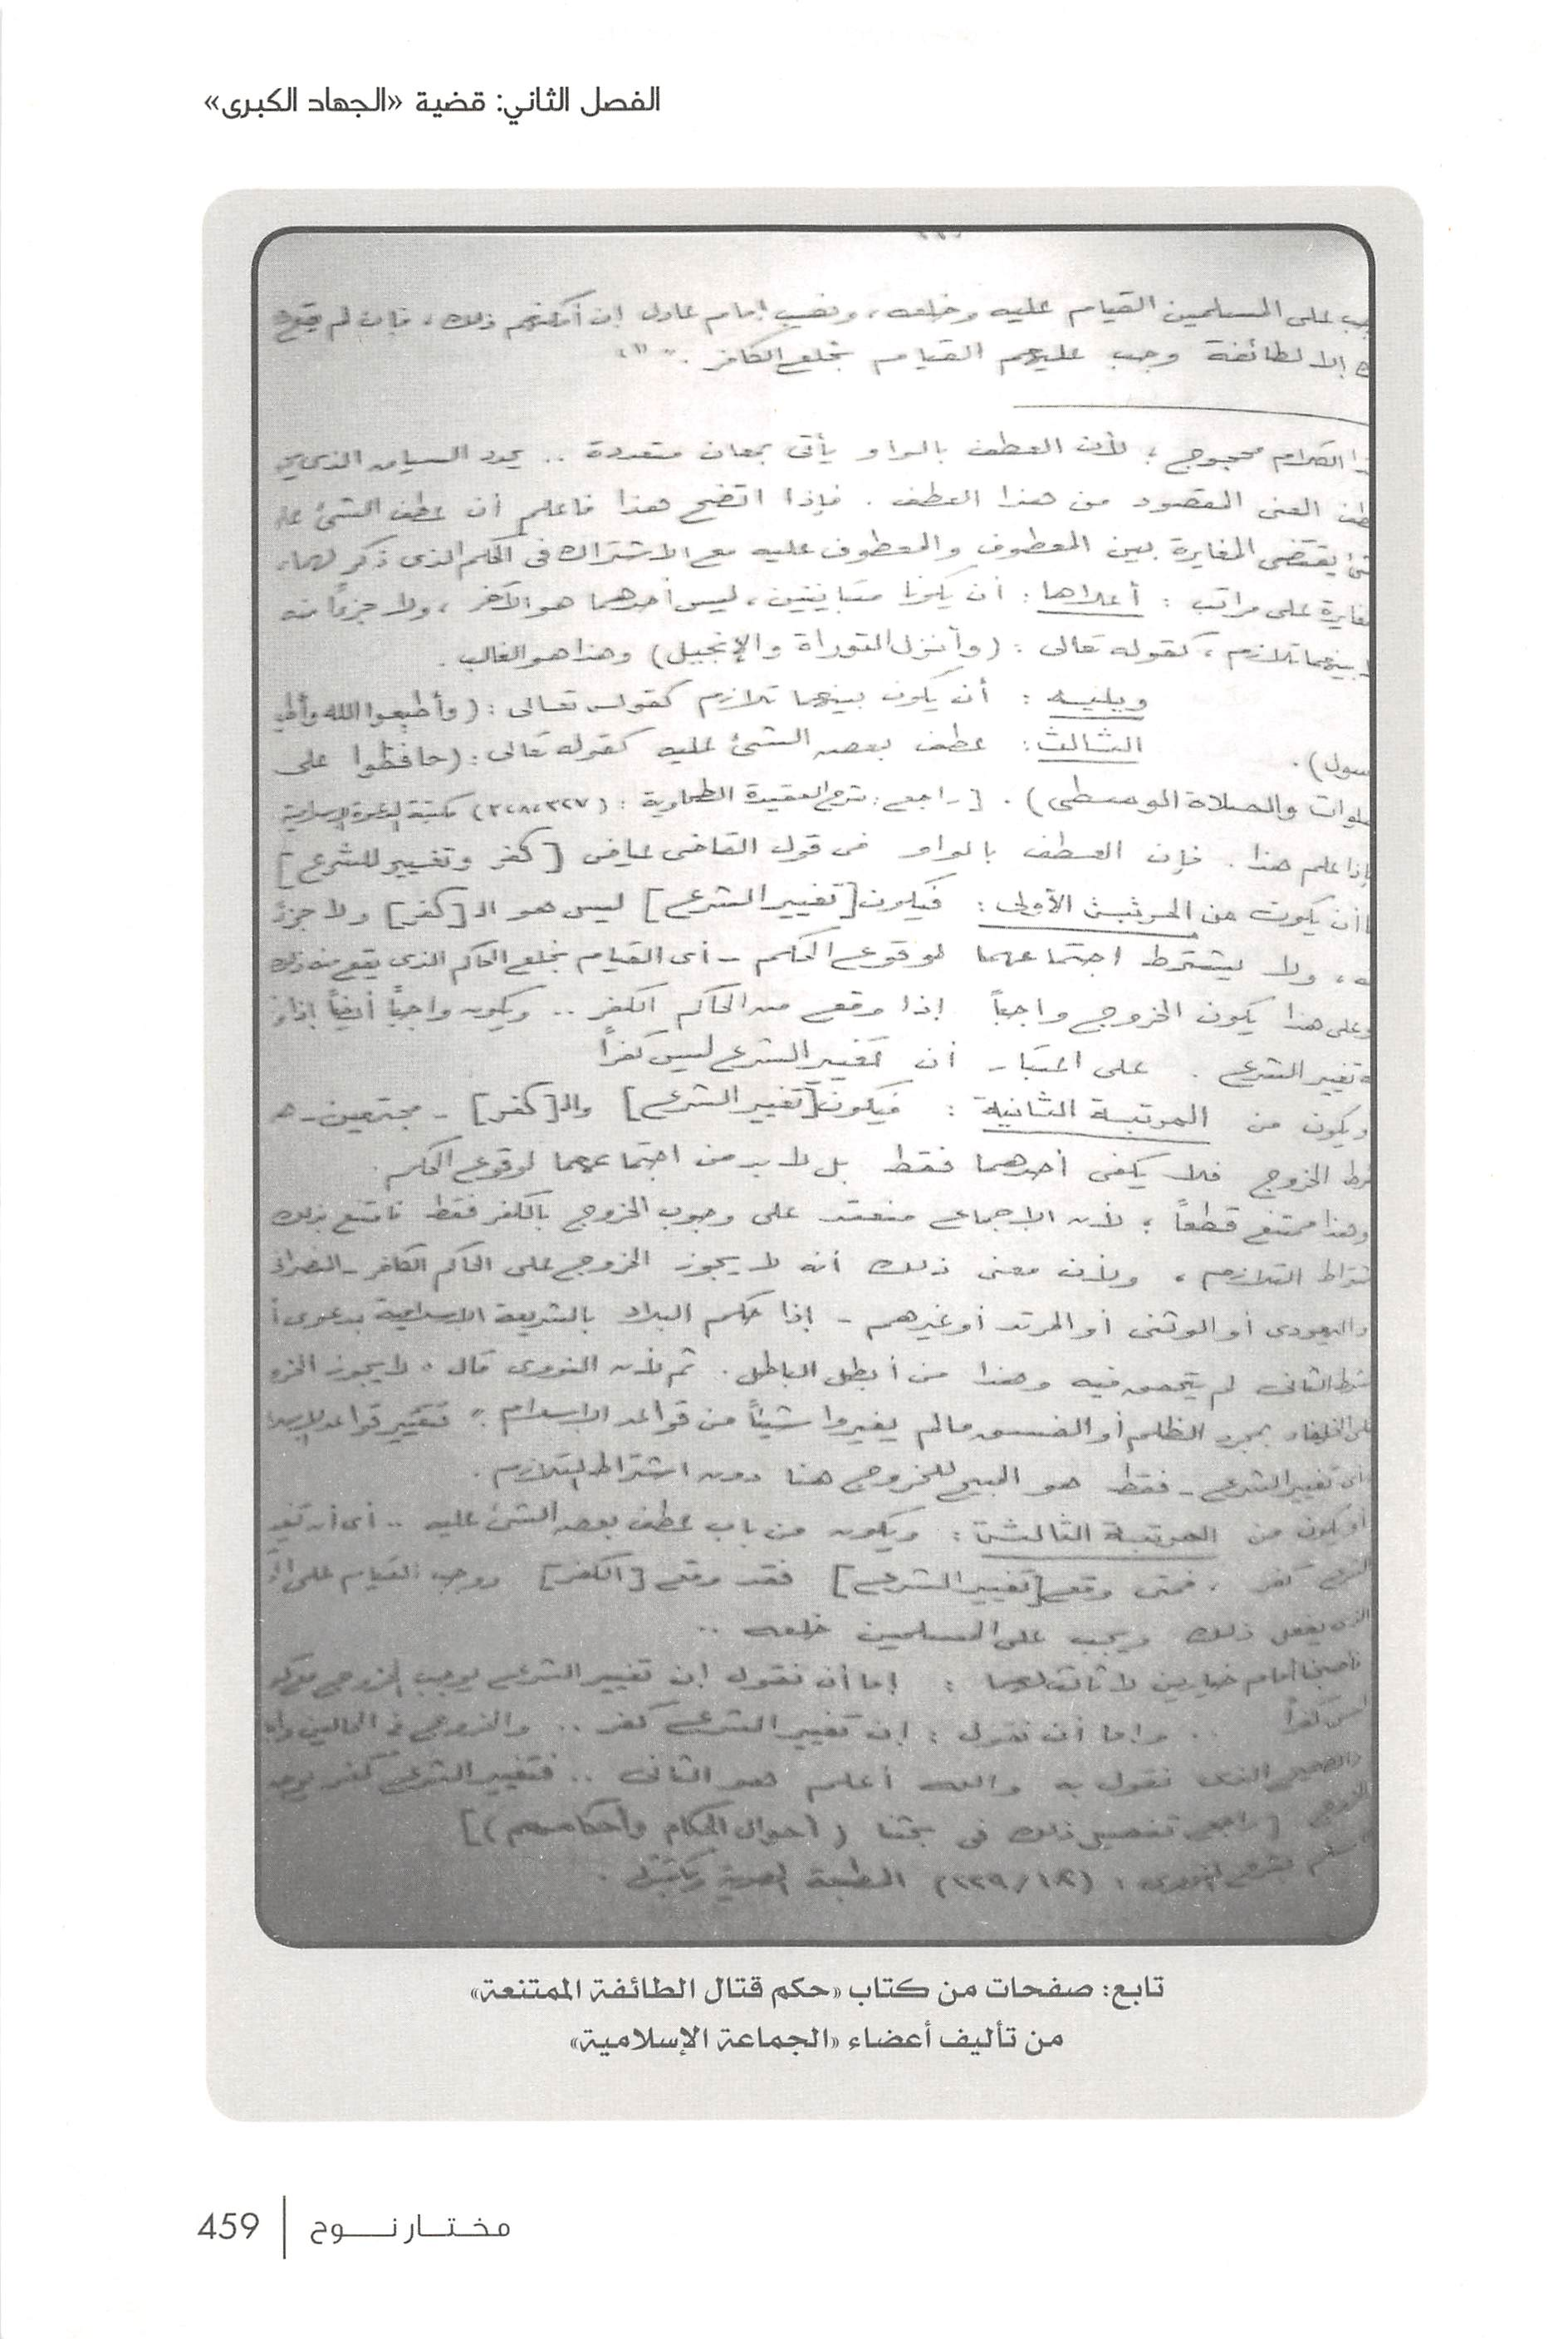 الفصل الثاني: قضية «الجهاد الكبرى»
جب على المسلمين القيام عليه وخلعه، ونصب إمام عادل إن أمكنهم ذلك، فإن لم يقع
ك إلا لطائفة وجب عليهم القيام بخلع الكافر." (١)
ذا الكلام محجوج؛ لأن العطف بالواو يأتى بمعان متعددة .. يحدد السياق الذى
المعنى المقصود من هذا العطف. فإذا اتضح هذا فاعلم أن عطف الشئ على
يقتضى المغايرة بين المعطوف والمعطوف عليه مع الاشتراك فى الحكم الذى ذكر لهما،
مغايرة على مراتب : أعلاها : أن يكونا متباينين، ليس أحدهما هو الآخر، ولا جزءاً منه
بينهما تلازم، كقوله تعالى : (وأنزل التوراة والإنجيل) وهذا هو الغالب.
ويليه : أن يكون بينهما تلازم كقوله تعالى : (وأطيعوا الله وأطي
سول). الثالث : عطف بعض الشئ عليه كقوله تعالى : (حافظوا على
صلوات والصلاة الوسطى). [راجع : شرح العقيدة الطحاوية : (٣٢٧، ٣٢٨) مكتبة الدعوة الإسلامية
إذا علم هذا. فإن العطف بالواو فى قول القاضى عياض [كفر وتغيير للشرع]
ا أن يكون من المرتبة الأولى : فيكون [تغيير الشرع] ليس هو الـ [كفر] ولا جزء
ه، ولا يشترط اجتماعهما لوقوع الحكم - أى القيام بخلع الحاكم الذى يقع منه ذلك
وعلى هذا يكون الخروج واجباً إذا وقع من الحاكم الكفر .. ويكون واجباً أيضاً إذا
ه تغيير الشرع. على اعتبار أن تغيير الشرع ليس كفراً
ويكون من المرتبة الثانية : فيكون [تغيير الشرع] والـ [كفر] - مجتمعين - هـ
شرط الخروج فلا يكفى أحدهما فقط بل لا بد من اجتماعهما لوقوع الحكم.
وهذا ممتنع قطعاً؛ لأن الإجماع منعقد على وجوب الخروج بالكفر فقط فامتنع بذلك
شتراط التلازم، ولأن معنى ذلك أنه لا يجوز الخروج على الحاكم الكافر - النصرانى
واليهودى أو الوثنى أو المرتد أو غيرهم - إذا حكم البلاد بالشريعة الإسلامية بدعوى أ
شرط الثانى لم يتحقق فيه وهذا من أبطل الباطل. ثم لأن النووى قال "لا يجوز الخرو
على الخلفاء بمجرد الظلم أو الفسق ما لم يغيروا شيئاً من قواعد الإسلام" فتغيير قواعد الإسلا
أى تغيير الشرع - فقط هو المبيح للخروج هنا دون اشتراط التلازم.
أو يكون من المرتبة الثالثة : ويكون من باب عطف بعض الشئ عليه .. أى أن تغيـ
الشرع كفر، فمتى وقع [تغيير الشرع] فقد وقع [الكفر] ووجب القيام على
الذى يفعل ذلك ويجب على المسلمين خلعه ..
فأصبحنا أمام خيارين لا ثالث لهما : إما أن نقول إن تغيير الشرع يوجب الخروج
ليس كفراً .. وإما أن نقول : إن تغيير الشرع كفر .. والخروج فى الحالين
والصحيح الذى نقول به والله أعلم هو الثانى .. فتغيير الشرع كفر
الخروج [راجع تفصيل ذلك فى بحثنا (أحوال الحكام وأحكامهم)]
مسلم بشرح النووى : (١٢/٢٢٩) المطبعة المصرية ومكتبتها.
تابع: صفحات من كتاب «حكم قتال الطائفة الممتنعة»
من تأليف أعضاء «الجماعة الإسلامية»
مختار نوح | 459